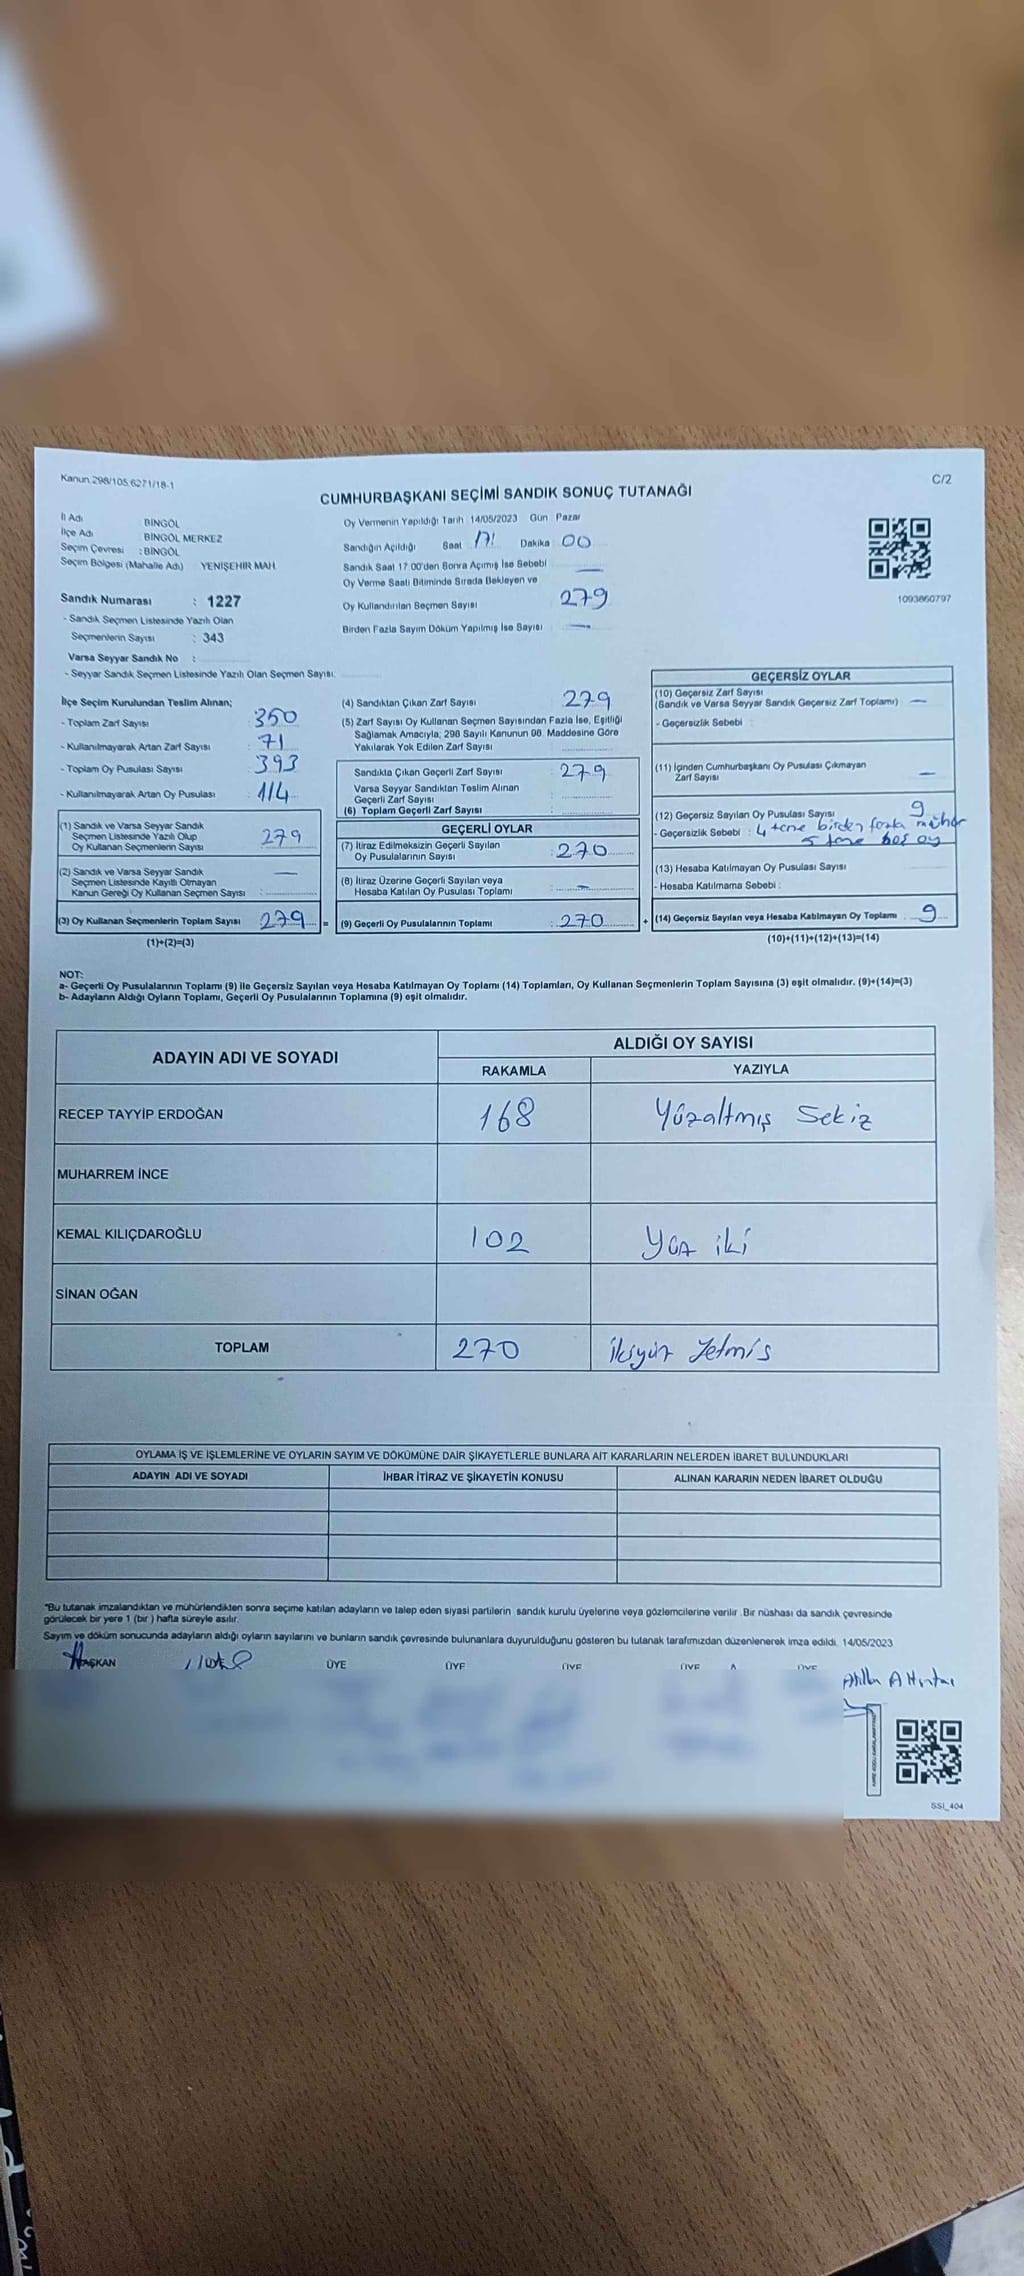 Kanun,298/105,6271/18-1
C/2
CUMHURBAŞKANI SEÇİMİ SANDIK SONUÇ TUTANAĞI
İl Adı BİNGÖL
İlçe Adı BİNGÖL MERKEZ
Seçim Çevresi : BİNGÖL
Seçim Bölgesi (Mahalle Adı) YENİŞEHİR MAH.
Sandık Numarası : 1227
- Sandık Seçmen Listesinde Yazılı Olan
Seçmenlerin Sayısı : 343
Varsa Seyyar Sandık No :
- Seyyar Sandık Seçmen Listesinde Yazılı Olan Seçmen Sayısı:
Oy Vermenin Yapıldığı Tarih 14/05/2023 Gün Pazar
Sandığın Açıldığı Saat 17: Dakika 00
Sandık Saat 17:00'den Sonra Açımış İse Sebebi —
Oy Verme Saati Bitiminde Sırada Bekleyen ve
Oy Kullandırılan Seçmen Sayısı 279
Birden Fazla Sayım Döküm Yapılmış İse Sayısı : —
1093860797
İlçe Seçim Kurulundan Teslim Alınan;
- Toplam Zarf Sayısı 350
- Kullanılmayarak Artan Zarf Sayısı 71
- Toplam Oy Pusulası Sayısı 393
- Kullanılmayarak Artan Oy Pusulası 114
(1) Sandık ve Varsa Seyyar Sandık
Seçmen Listesinde Yazılı Olup
Oy Kullanan Seçmenlerin Sayısı 279
(2) Sandık ve Varsa Seyyar Sandık
Seçmen Listesinde Kayıtlı Olmayan
Kanun Gereği Oy Kullanan Seçmen Sayısı —
(3) Oy Kullanan Seçmenlerin Toplam Sayısı 279 =
(1)+(2)=(3)
(4) Sandıktan Çıkan Zarf Sayısı 279
(5) Zarf Sayısı Oy Kullanan Seçmen Sayısından Fazla İse, Eşitliği
Sağlamak Amacıyla; 298 Sayılı Kanunun 98. Maddesine Göre
Yakılarak Yok Edilen Zarf Sayısı
Sandıkta Çıkan Geçerli Zarf Sayısı : 279
Varsa Seyyar Sandıktan Teslim Alınan
Geçerli Zarf Sayısı :
(6) Toplam Geçerli Zarf Sayısı :
GEÇERLİ OYLAR
(7) İtiraz Edilmeksizin Geçerli Sayılan
Oy Pusulalarının Sayısı : 270
(8) İtiraz Üzerine Geçerli Sayılan veya
Hesaba Katılan Oy Pusulası Toplamı : —
(9) Geçerli Oy Pusulalarının Toplamı : 270 +
GEÇERSİZ OYLAR
(10) Geçersiz Zarf Sayısı
(Sandık ve Varsa Seyyar Sandık Geçersiz Zarf Toplamı) —
- Geçersizlik Sebebi :
(11) İçinden Cumhurbaşkanı Oy Pusulası Çıkmayan
Zarf Sayısı —
(12) Geçersiz Sayılan Oy Pusulası Sayısı 9
- Geçersizlik Sebebi : 4 tane birden fazla mühür
5 tane boş oy
(13) Hesaba Katılmayan Oy Pusulası Sayısı
- Hesaba Katılmama Sebebi :
(14) Geçersiz Sayılan veya Hesaba Katılmayan Oy Toplamı 9
(10)+(11)+(12)+(13)=(14)
NOT:
a- Geçerli Oy Pusulalarının Toplamı (9) ile Geçersiz Sayılan veya Hesaba Katılmayan Oy Toplamı (14) Toplamları, Oy Kullanan Seçmenlerin Toplam Sayısına (3) eşit olmalıdır. (9)+(14)=(3)
b- Adayların Aldığı Oyların Toplamı, Geçerli Oy Pusulalarının Toplamına (9) eşit olmalıdır.
ADAYIN ADI VE SOYADI
ALDIĞI OY SAYISI
RAKAMLA YAZIYLA
RECEP TAYYİP ERDOĞAN 168 Yüzaltmış Sekiz
MUHARREM İNCE
KEMAL KILIÇDAROĞLU 102 Yüz iki
SİNAN OĞAN
TOPLAM 270 ikiyüz Yetmiş
OYLAMA İŞ VE İŞLEMLERİNE VE OYLARIN SAYIM VE DÖKÜMÜNE DAİR ŞİKAYETLERLE BUNLARA AİT KARARLARIN NELERDEN İBARET BULUNDUKLARI
ADAYIN ADI VE SOYADI İHBAR İTİRAZ VE ŞİKAYETİN KONUSU ALINAN KARARIN NEDEN İBARET OLDUĞU
*Bu tutanak imzalandıktan ve mühürlendikten sonra seçime katılan adayların ve talep eden siyasi partilerin sandık kurulu üyelerine veya gözlemcilerine verilir. Bir nüshası da sandık çevresinde
görülecek bir yere 1 (bir) hafta süreyle asılır.
Sayım ve döküm sonucunda adayların aldığı oyların sayılarını ve bunların sandık çevresinde bulunanlara duyurulduğunu gösteren bu tutanak tarafımızdan düzenlenerek imza edildi. 14/05/2023
BAŞKAN ÜYE ÜYE ÜYE ÜYE ÜYE
SSI_404